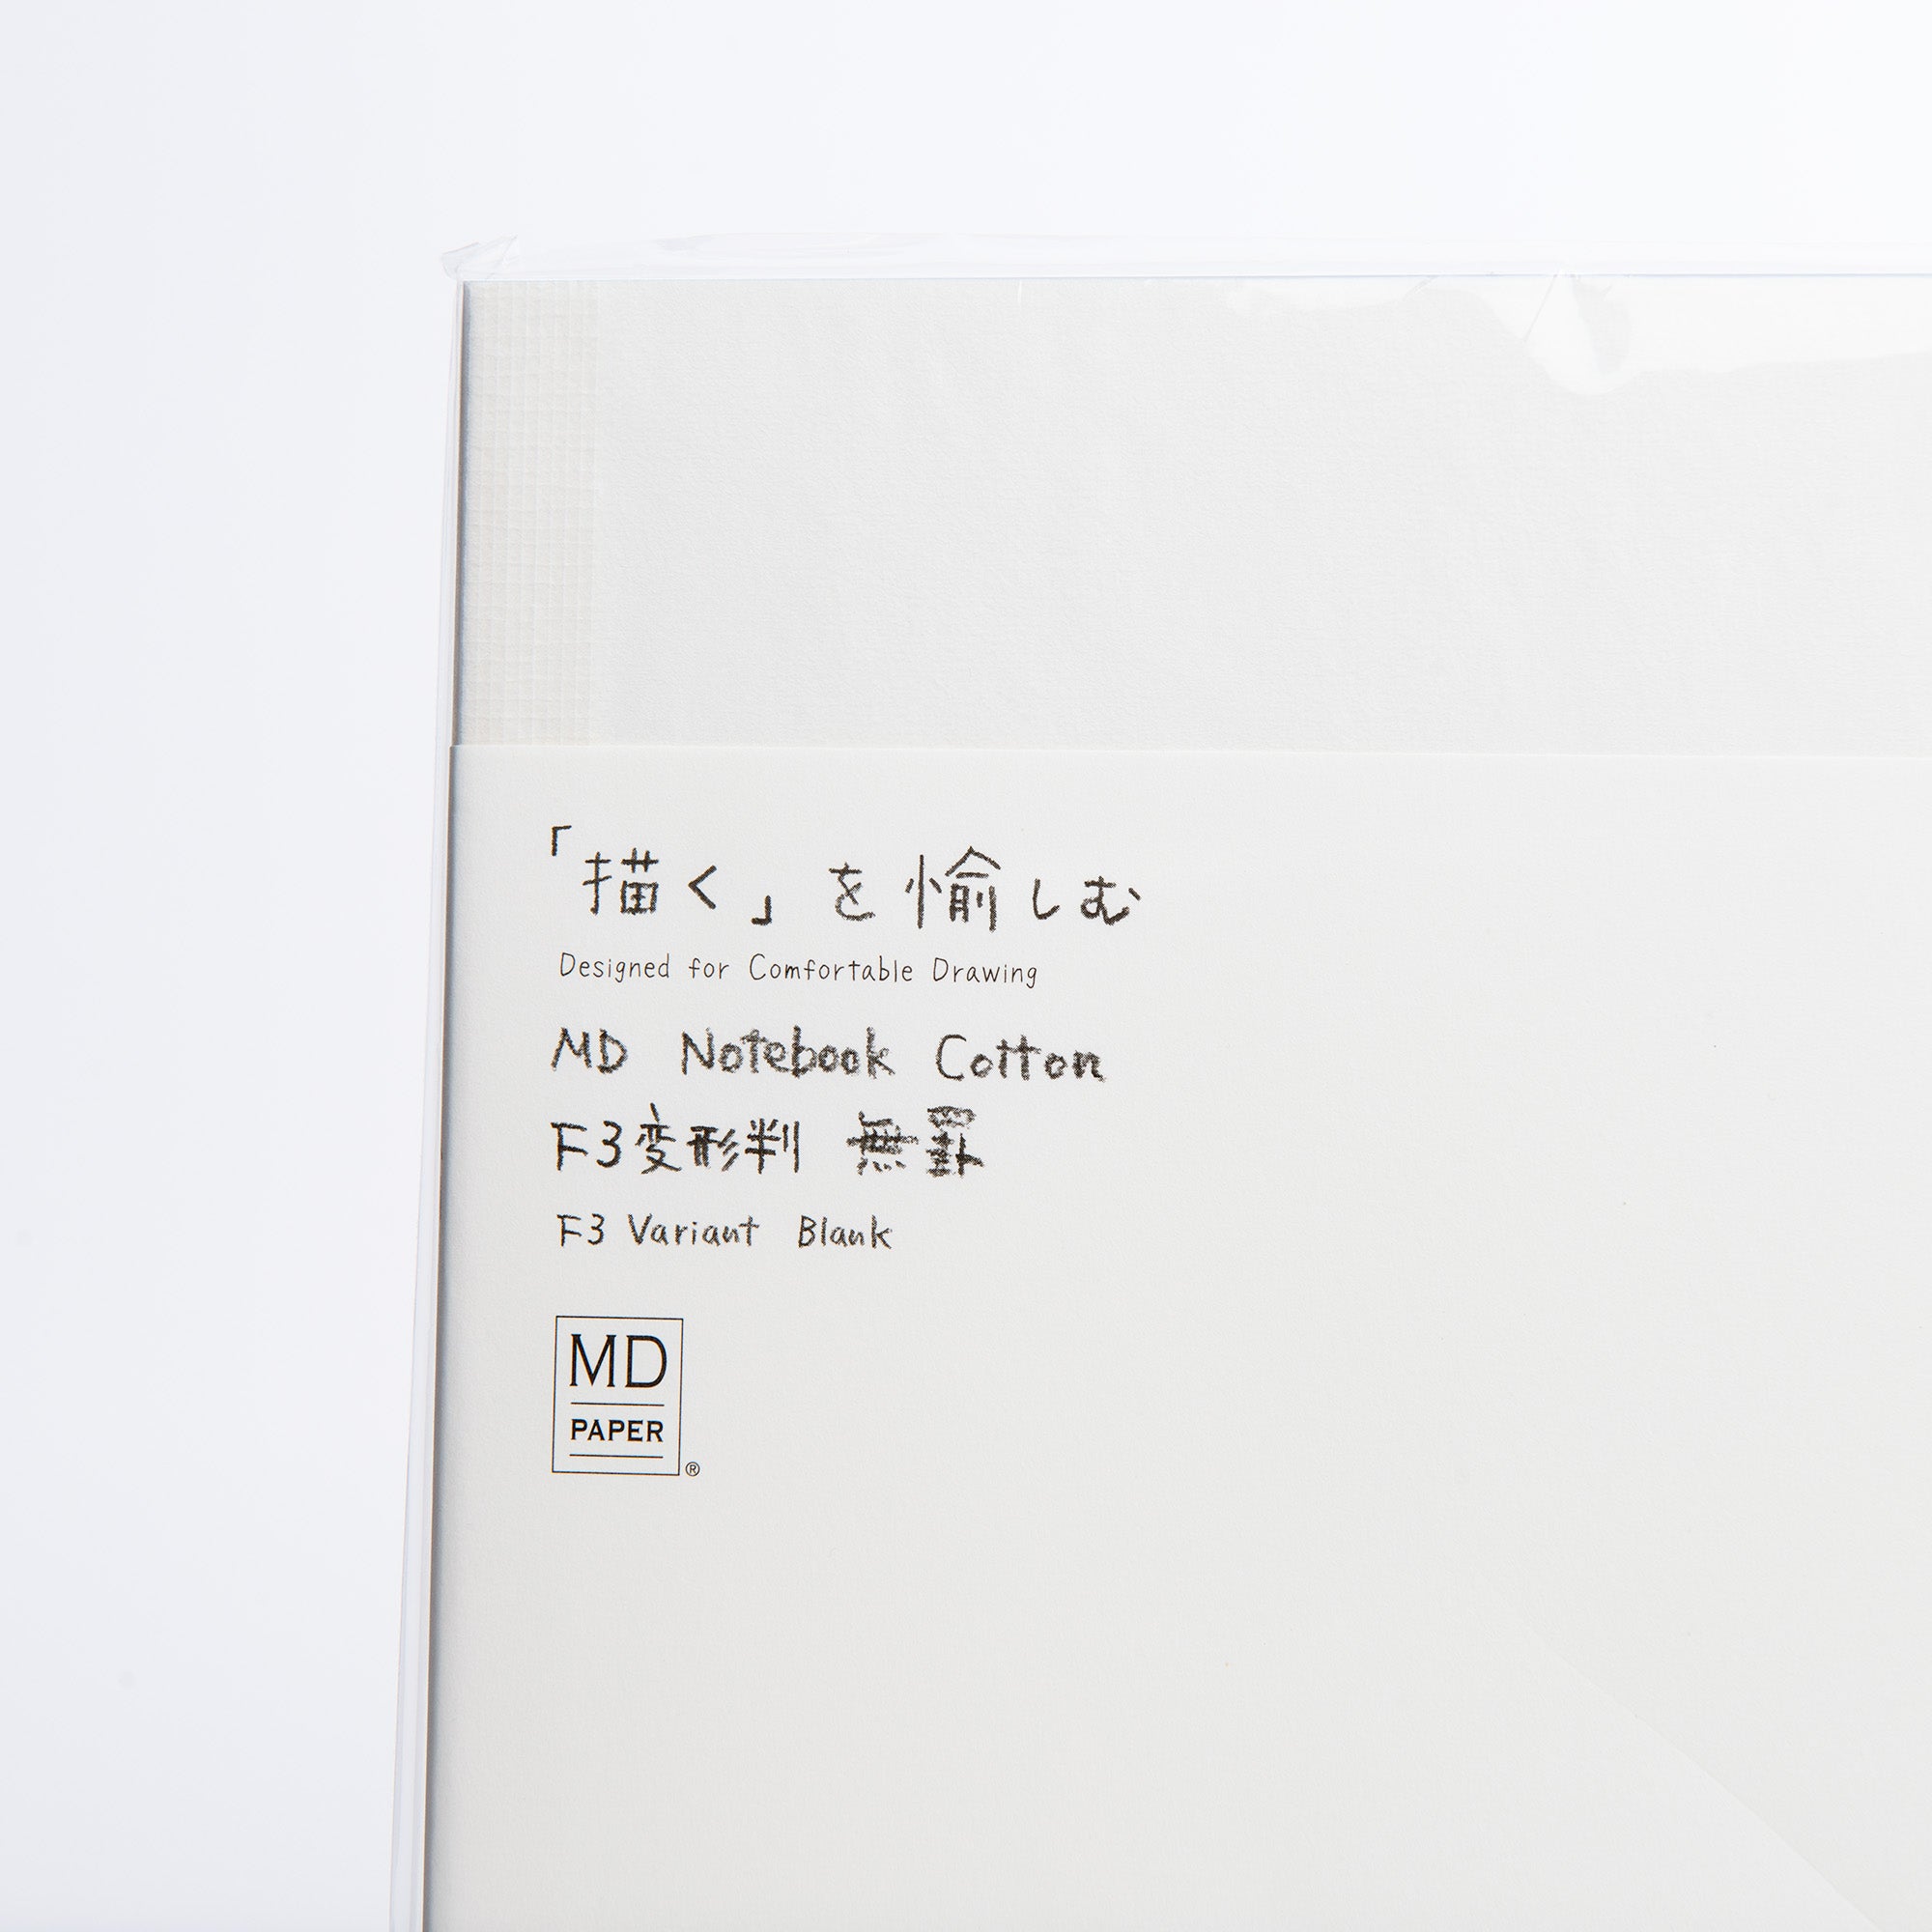 「描く」を愉しむ
Designed for Comfortable Drawing
MD Notebook Cotton
F3変形判 無罫
F3 Variant Blank
MD
PAPER
®